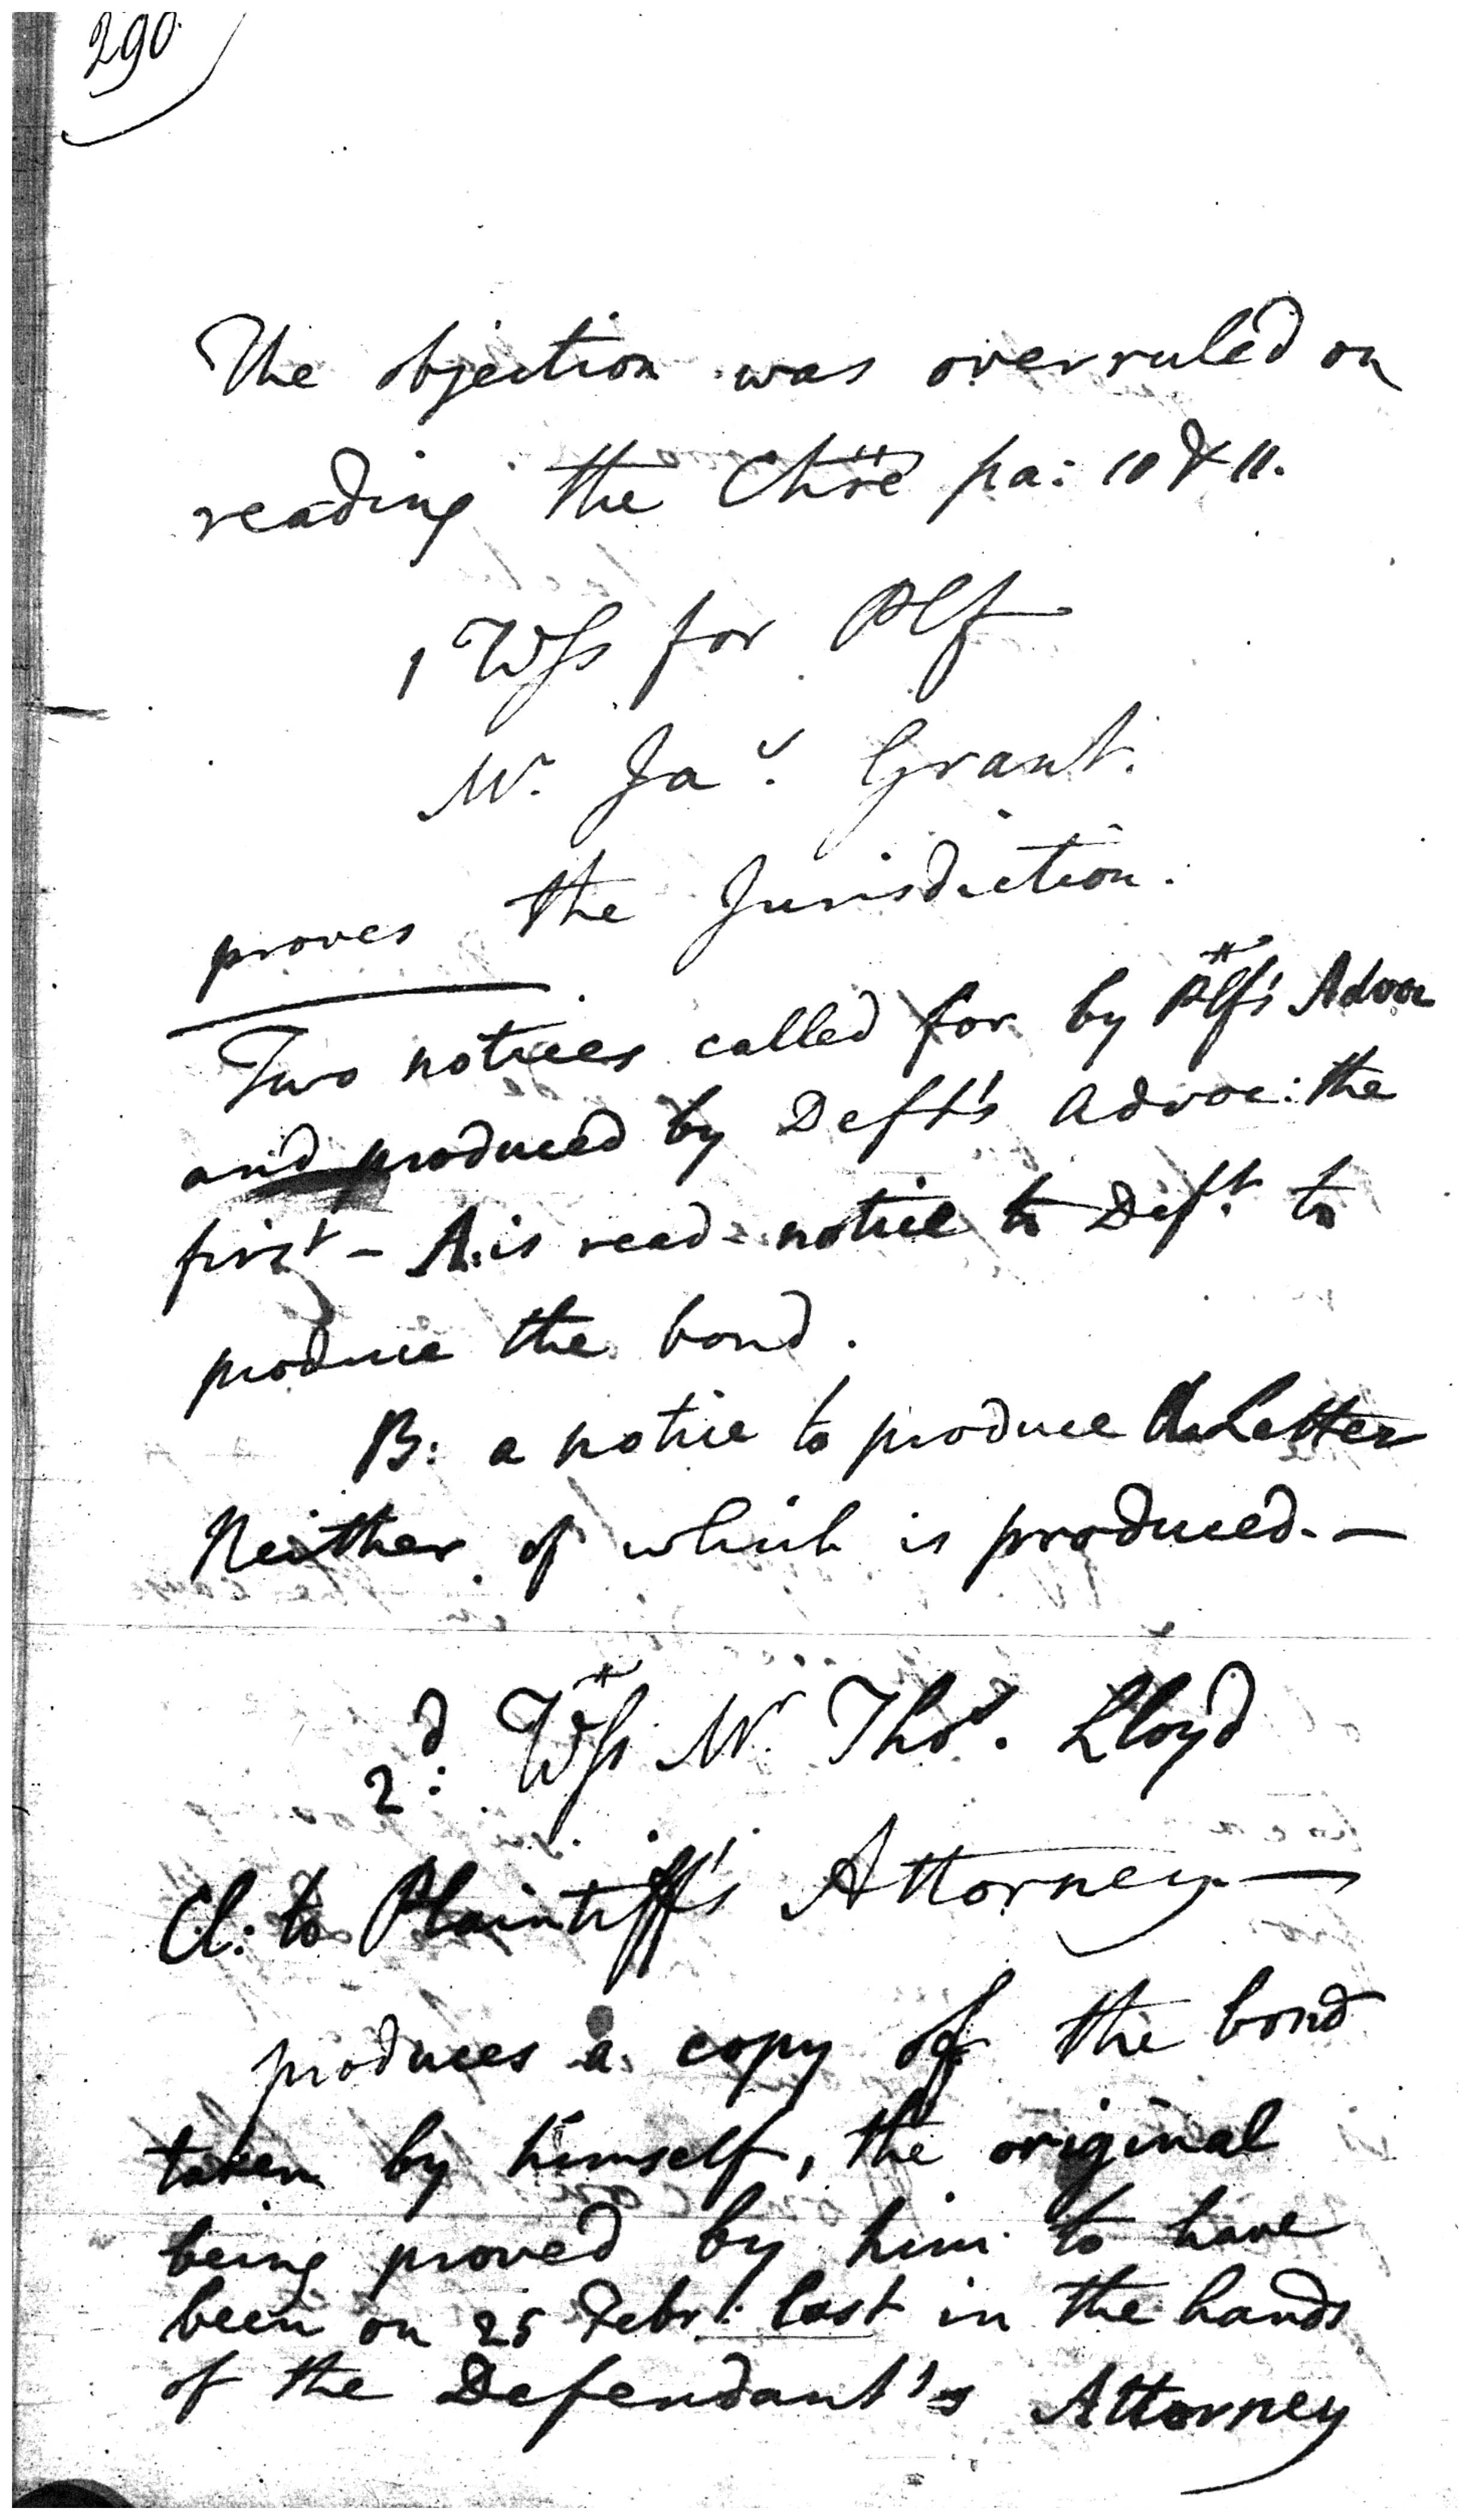 290
The objection was overruled on
reading the pa: 10 & 11.
1 Wss for Plf
Mr. Jas. Grant.
proves the Jurisdiction.
Two notices called for by Plf's Advoc
and produced by Deft's Advoc: the
first - A. is read notice to Deft. to
produce the bond.
B: a notice to produce Letter
Neither of which is produced. —
2d: Wss Mr. Thos. Lloyd
Cl: to Plaintiff's Attorney —
produces a copy of the bond
taken by himself, the original
being proved by him to have
been on 25 Febr: last in the hands
of the Defendant's Attorney